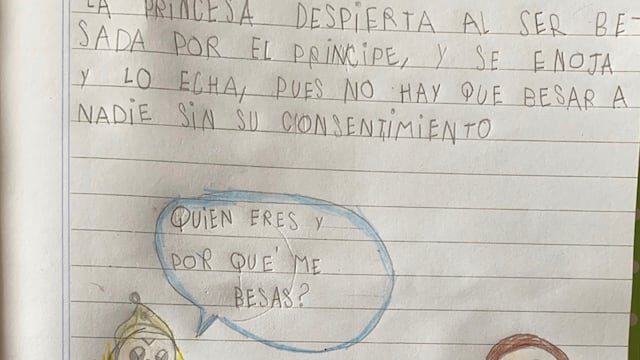 LA PRINCESA DESPIERTA AL SER BE-
SADA POR EL PRÍNCIPE, Y SE ENOJA
Y LO ECHA, PUES NO HAY QUE BESAR A
NADIE SIN SU CONSENTIMIENTO
QUIEN ERES Y
POR QUÉ ME
BESAS?